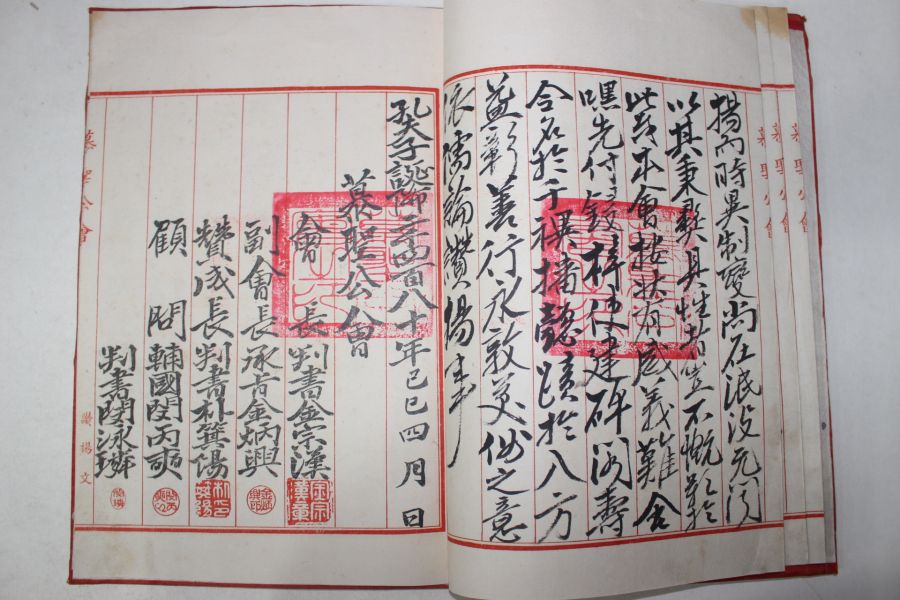 揚而時異制變尚在泯沒无聞
以其秉彝具性者豈不慨歎於
此哉本會按狀有感義難含
嘿先付鋟梓使建碑閣壽
令名於千禩播懿蹟於八方
益彰善行永敦美俗之意
依儒論讚揚事
孔夫子誕降二千四百八十年己巳四月 日
慕聖公會
會長 判書金宗漢
副會長 承旨金炳興
贊成長 判書朴箕陽
顧問 輔國閔丙奭
判書閔泳璘
慕聖公會
讚揚文
慕聖公會
慕聖公會